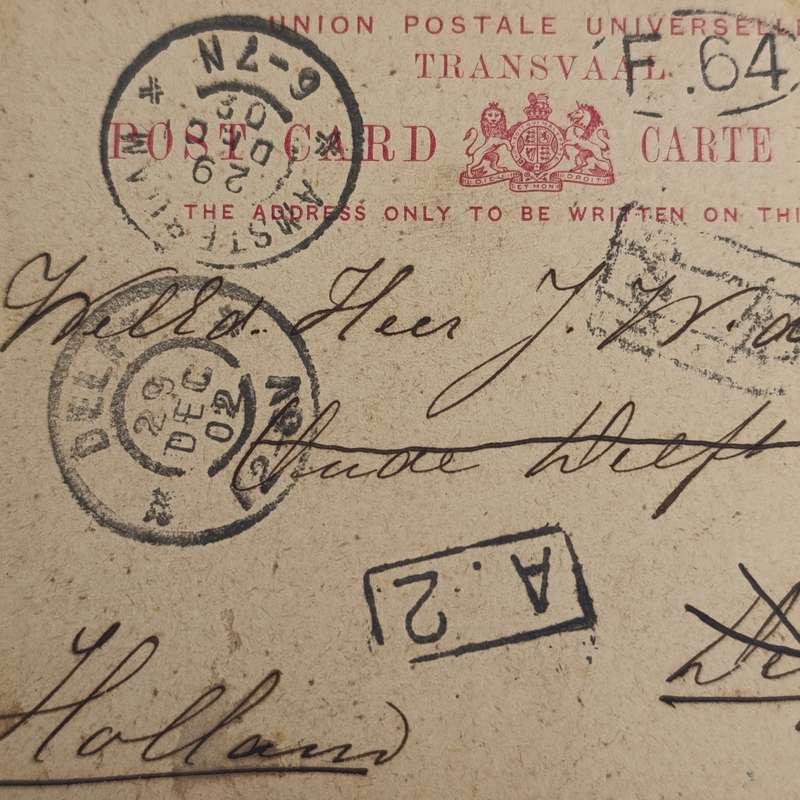 UNION POSTALE UNIVERSELLE
TRANSVAAL
F.64
POST CARD CARTE
DIEU ET MON DROIT
THE ADDRESS ONLY TO BE WRITTEN ON THI
AMSTERDAM
6-7N
29 DEC 02
WelEd. Heer J. W. d
DELFT
12-3V
29 DEC 02
Oude Delft
A.2
De
Holland